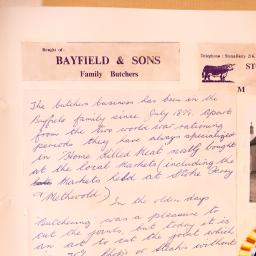 Bought of:
BAYFIELD & SONS
Family Butchers
Telephone : Stoneferry 216
ST
M
The butchers business has been in the
Bayfield family since July 1899. Apart
from the two world war rationing
periods they have always specialized
in Home Killed Meat mostly bought
at the local Markets (including the
Markets held at Stoke Ferry
& Methwold) In the olden days
Butchering was a pleasure to
cut the joints, but today it is
an art to cut the joint which
is Chops or Steaks without